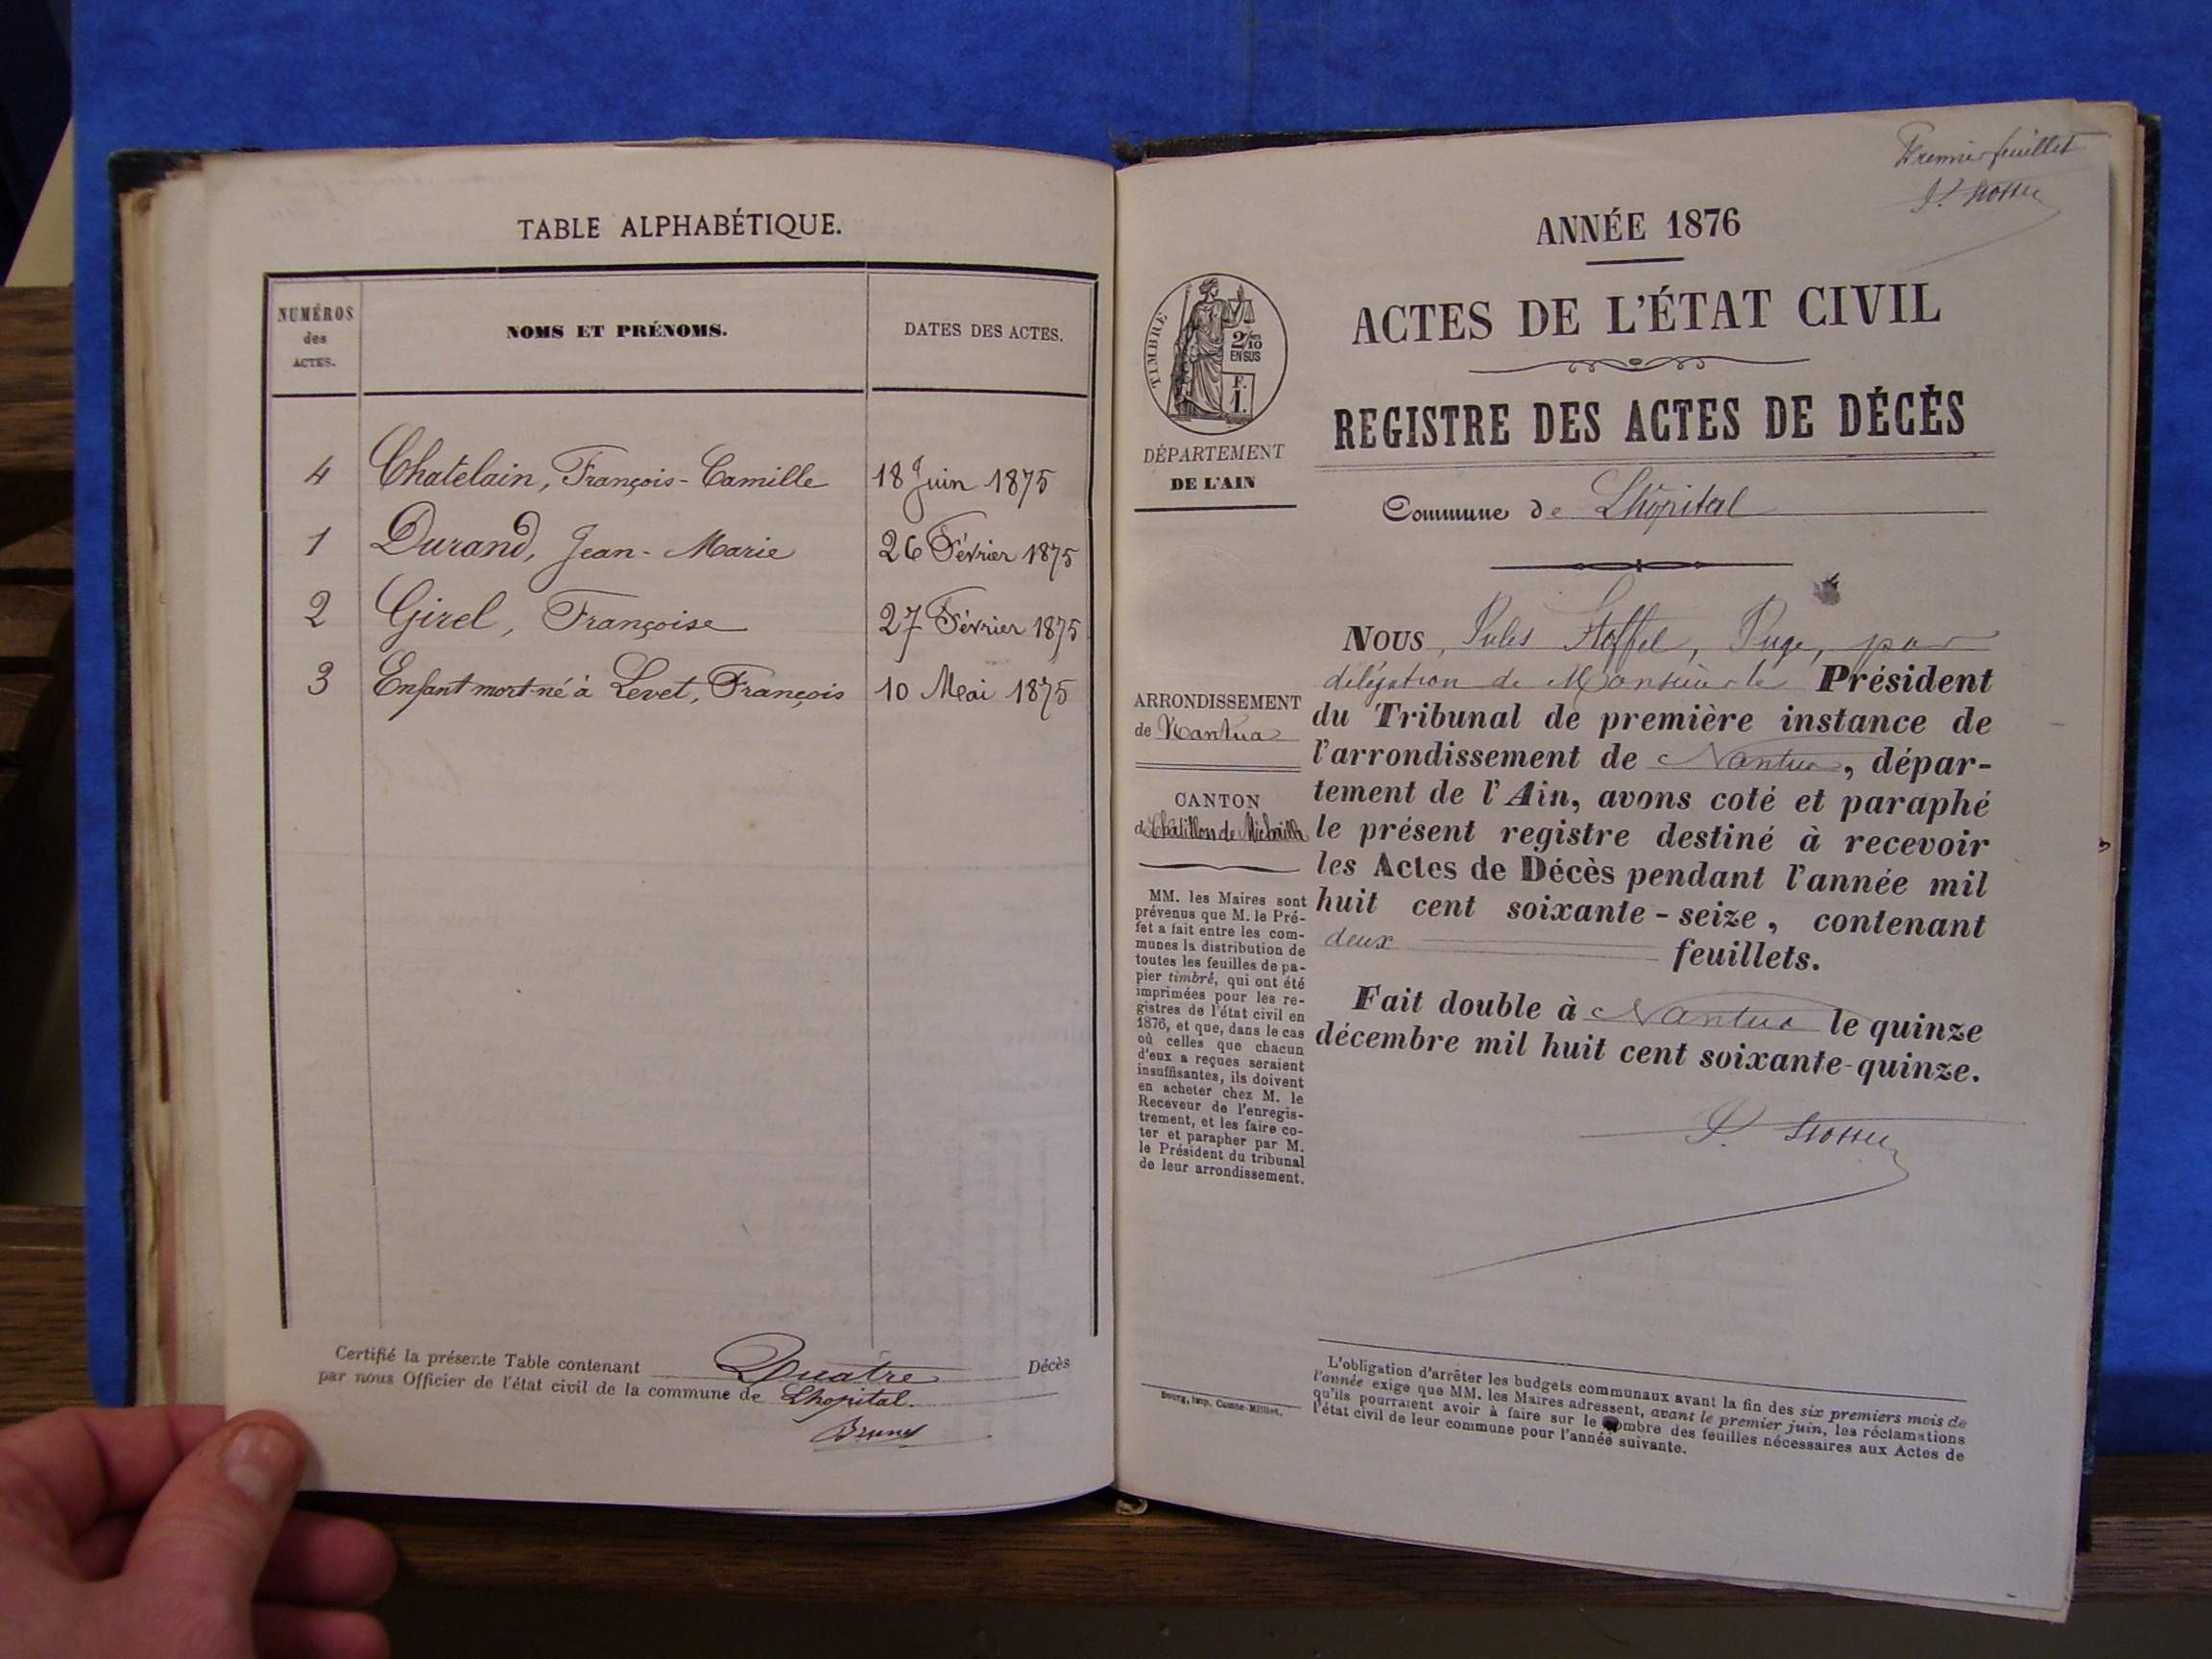 TABLE ALPHABÉTIQUE.
NUMÉROS des ACTES.
NOMS ET PRÉNOMS.
DATES DES ACTES.
4 Chatelain, François-Camille 18 Juin 1875
1 Durand, Jean-Marie 26 Février 1875
2 Girel, Françoise 27 Février 1875
3 Enfant mort-né à Levet, François 10 Mai 1875
Certifié la présente Table contenant Quatre Décès
par nous Officier de l'état civil de la commune de Lhopital.
Brunet
Premier feuillet
ANNÉE 1876
ACTES DE L'ÉTAT CIVIL
REGISTRE DES ACTES DE DÉCÈS
Commune de Lhôpital
TIMBRE
2/10
EN SUS
F.
1.
DÉPARTEMENT
DE L'AIN
ARRONDISSEMENT
de Nantua
CANTON
de Châtillon de Michaille
MM. les Maires sont
prévenus que M. le Pré-
fet a fait entre les com-
munes la distribution de
toutes les feuilles de pa-
pier timbré, qui ont été
imprimées pour les re-
gistres de l'état civil en
1876, et que, dans le cas
où celles que chacun
d'eux a reçues seraient
insuffisantes, ils doivent
en acheter chez M. le
Receveur de l'enregis-
trement, et les faire co-
ter et parapher par M.
le Président du tribunal
de leur arrondissement.
Bourg, imp. Comte-Milliet.
NOUS, Jules Stoffel, Juge, par
délégation de Monsieur le Président
du Tribunal de première instance de
l'arrondissement de Nantua, dépar-
tement de l'Ain, avons coté et paraphé
le présent registre destiné à recevoir
les Actes de Décès pendant l'année mil
huit cent soixante-seize, contenant
deux feuillets.
Fait double à Nantua le quinze
décembre mil huit cent soixante-quinze.
L'obligation d'arrêter les budgets communaux avant la fin des six premiers mois de
l'année exige que MM. les Maires adressent, avant le premier juin, les réclamations
qu'ils pourraient avoir à faire sur le nombre des feuilles nécessaires aux Actes de
l'état civil de leur commune pour l'année suivante.